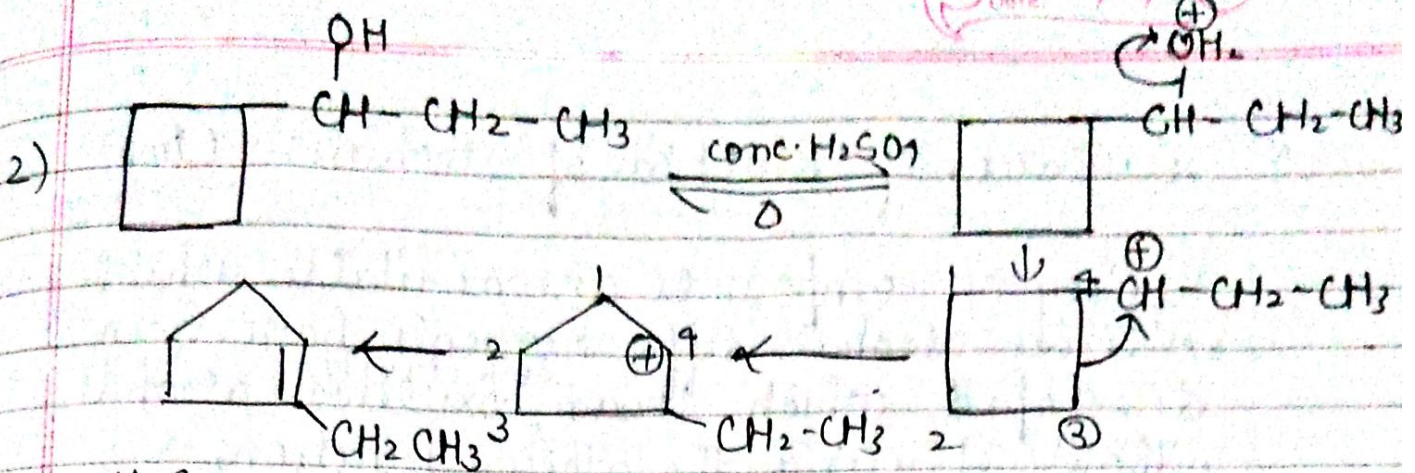 OH
⊕
OH₂
2) CH-CH2-CH3
conc. H2SO4
Δ
CH-CH2-CH3
1 4 ⊕
CH-CH2-CH3
2 ③
1
2 ⊕ 4
3 CH2-CH3
CH2CH3